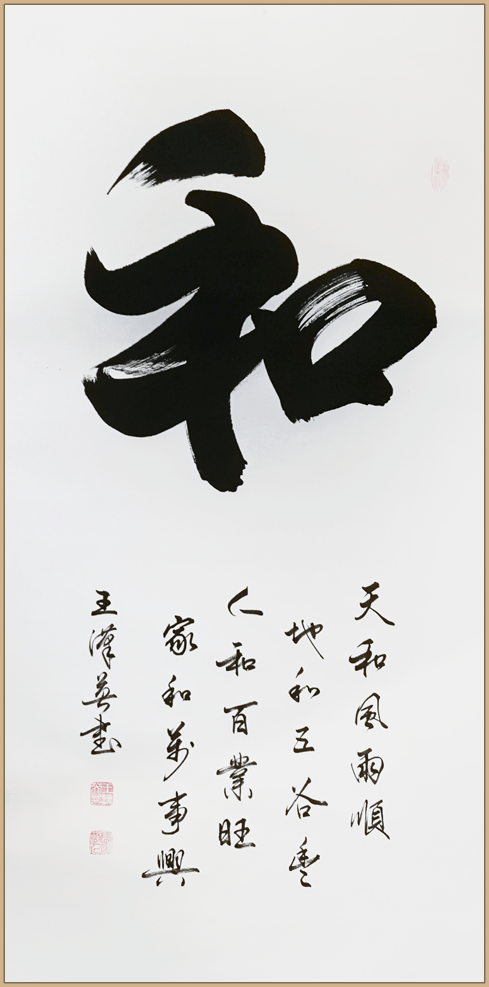 和
天和風雨順
地和五谷豐
人和百業旺
家和萬事興
王漢英書